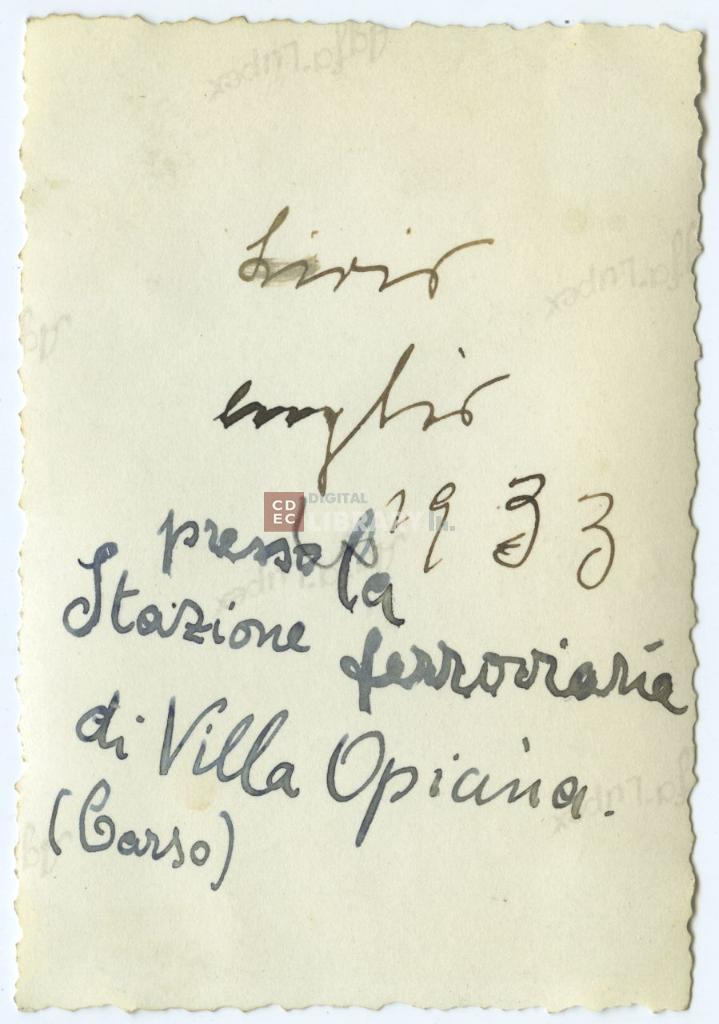 Livio
luglio
1933
presso la
Stazione ferroviaria
di Villa Opicina.
(Carso)
CDEC DIGITAL LIBRARY.it
Agfa-Lupex
Agfa-Lupex
Agfa-Lupex
Agfa-Lupex